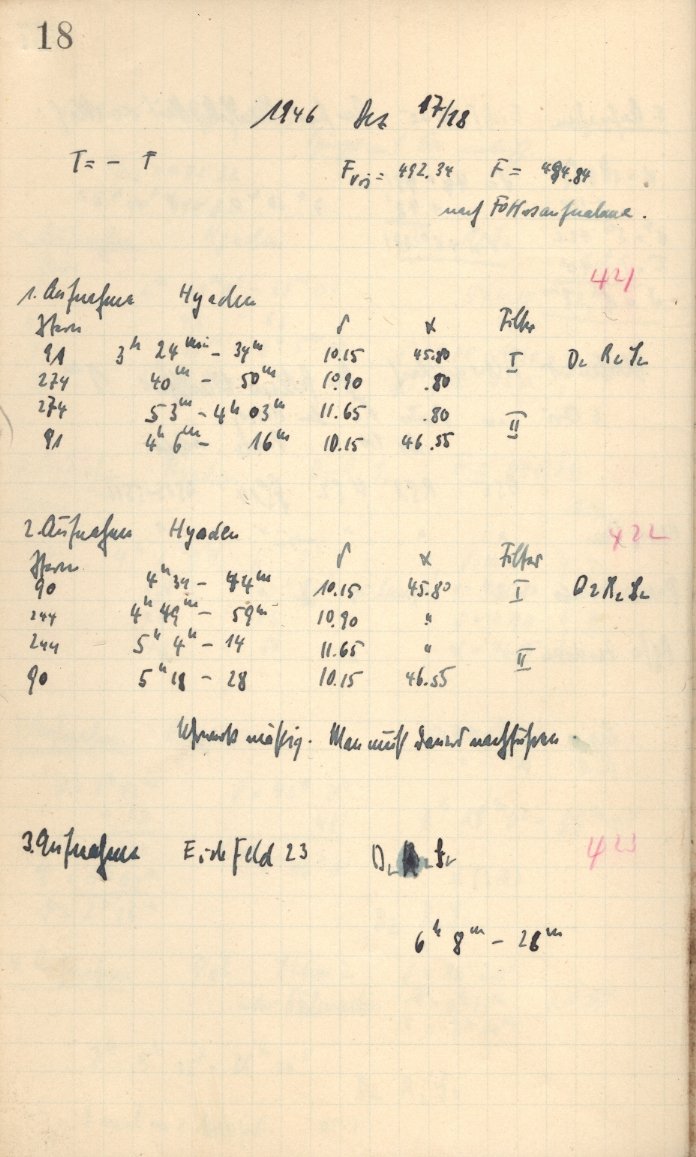 18
1946 Dez 17/18
T = – T Fvis = 492.34 F = 494.84
nach Fokusaufnahme.
421
1. Aufnahme Hyaden
Stern δ α Filter
91 3h 24min – 34m 10.15 45.80 I D2 R2 S2
274 40m – 50m 10.90 .80
274 53m – 4h 03m 11.65 .80 II
91 4h 6m – 16m 10.15 46.55
422
2. Aufnahme Hyaden
Stern δ α Filter
90 4h 34 – 44m 10.15 45.80 I D2 R2 S2
244 4h 49m – 59m 10.90 "
244 5h 4h – 14 11.65 " II
90 5h 18 – 28 10.15 46.55
Uhrwerk mäßig. Man muß dauernd nachführen
3. Aufnahme Eichfeld 23 423
6h 8m – 28m